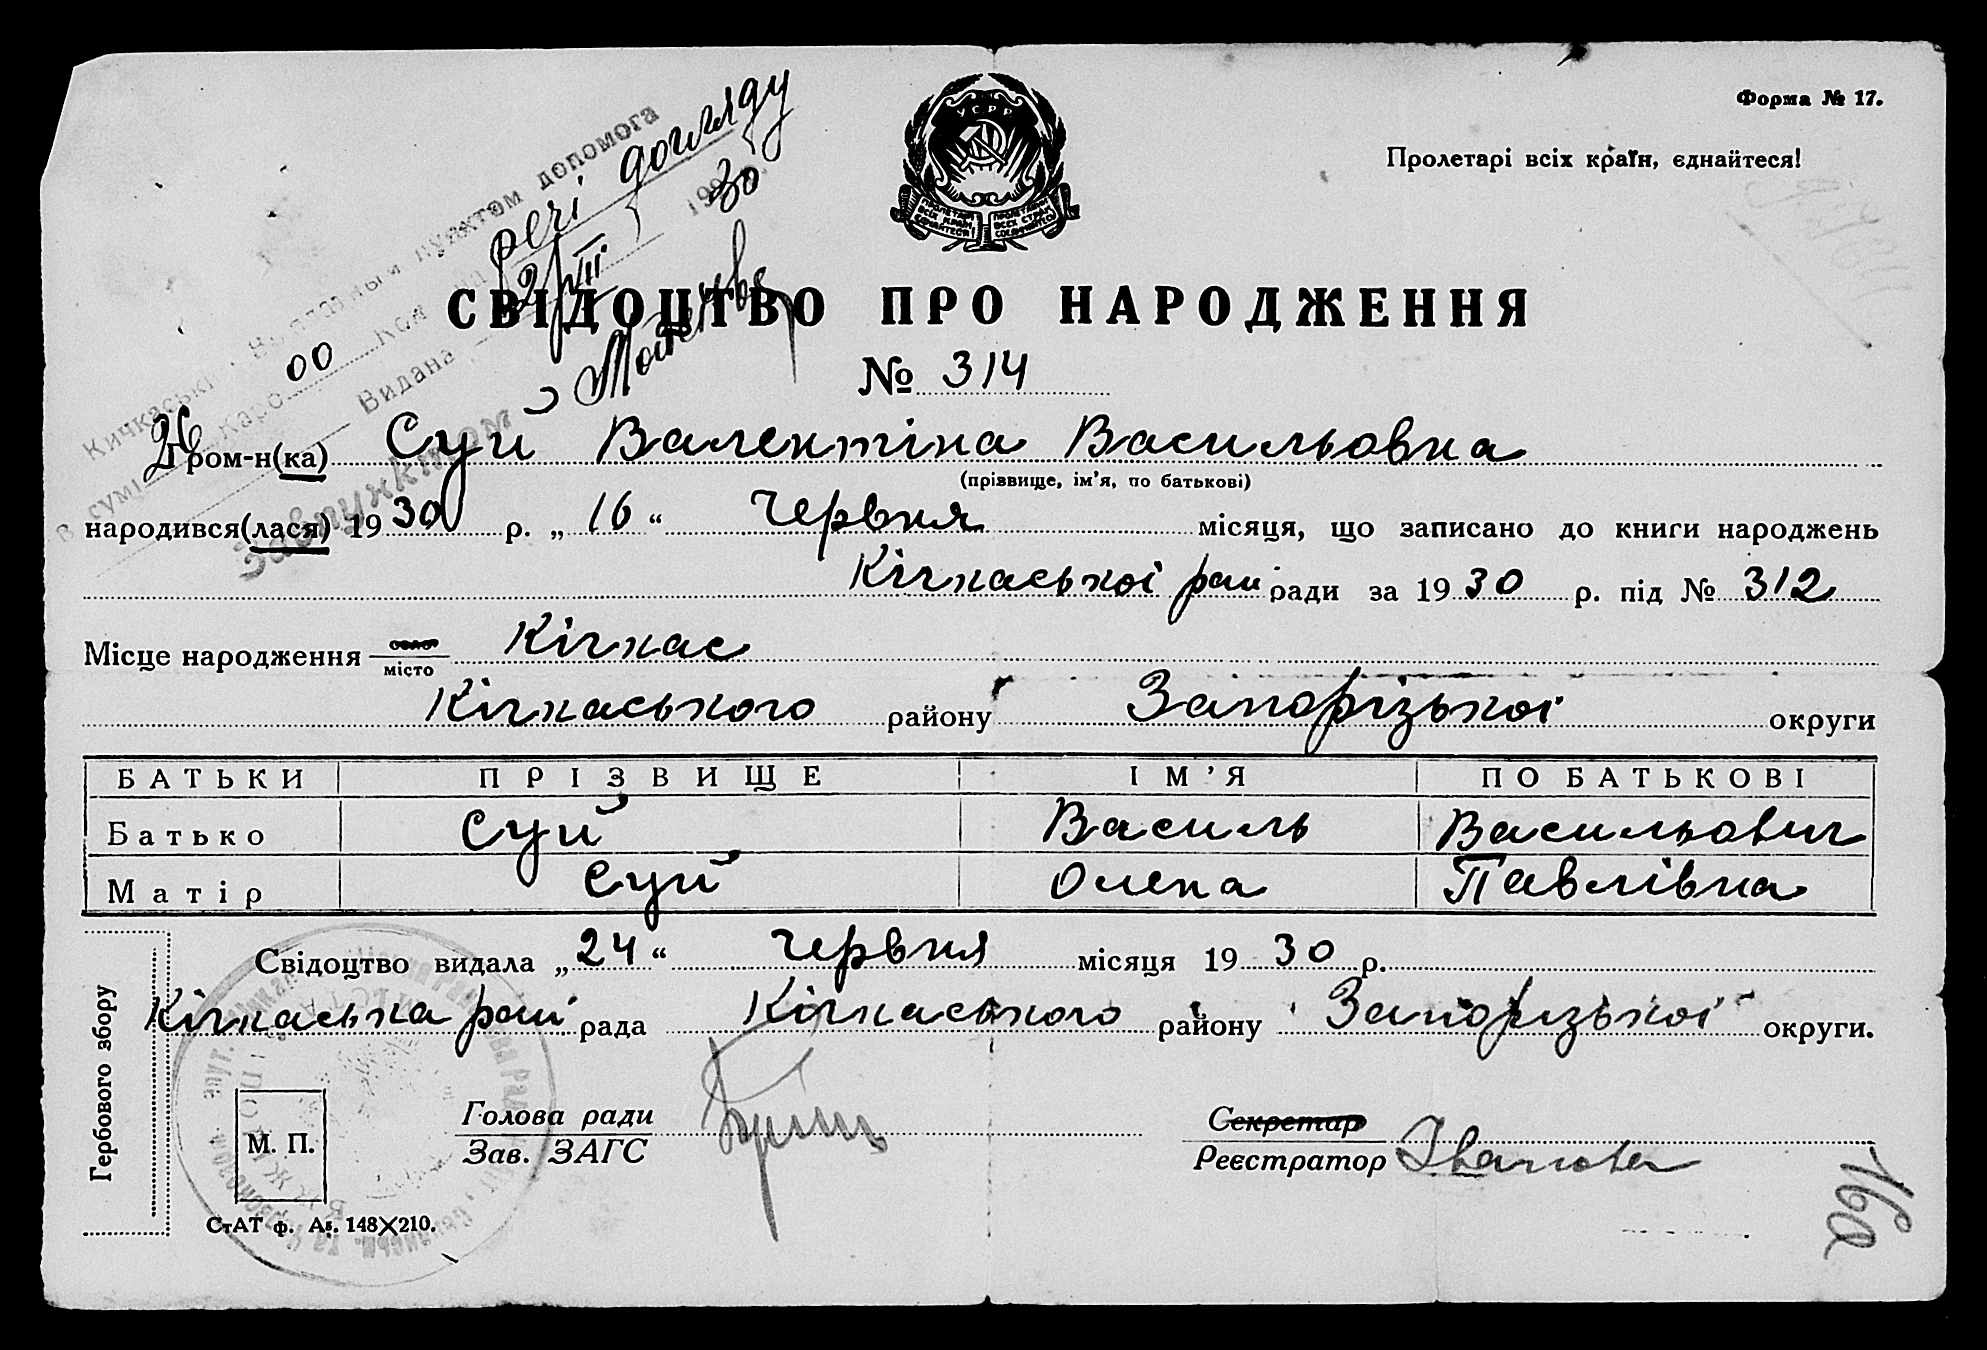 Форма № 17.
Пролетарі всіх країн, єднайтеся!
УСРР
ПРОЛЕТАРІ ВСІХ КРАЇН ЄДНАЙТЕСЯ!
ПРОЛЕТАРИИ ВСЕХ СТРАН СОЕДИНЯЙТЕСЬ
пунктом допомога
речі догляду
Видана 2/VII 1930
00 Кол.
Завпунктом
СВІДОЦТВО ПРО НАРОДЖЕННЯ
№ 314
Гром-н(ка) Суй Валентіна Васильовна
(прізвище, ім'я, по батькові)
народився(лася) 1930 р. „16“ Червня місяця, що записано до книги народжень
Кічкаської рай ради за 1930 р. під № 312
Місце народження село
місто Кічкас
Кічкаського району Запорізької округи
БАТЬКИ ПРІЗВИЩЕ ІМ'Я ПО БАТЬКОВІ
Батько Суй Василь Васильович
Матір Суй Олена Павлівна
Свідоцтво видала „24“ червня місяця 1930 р.
Кічкаська рай рада Кічкаського району Запорізької округи.
Гербового збору
М. П.
Голова ради
Зав. ЗАГС
Секретар
Реєстратор Іванова
СтАТ ф. А5. 148×210.
16а